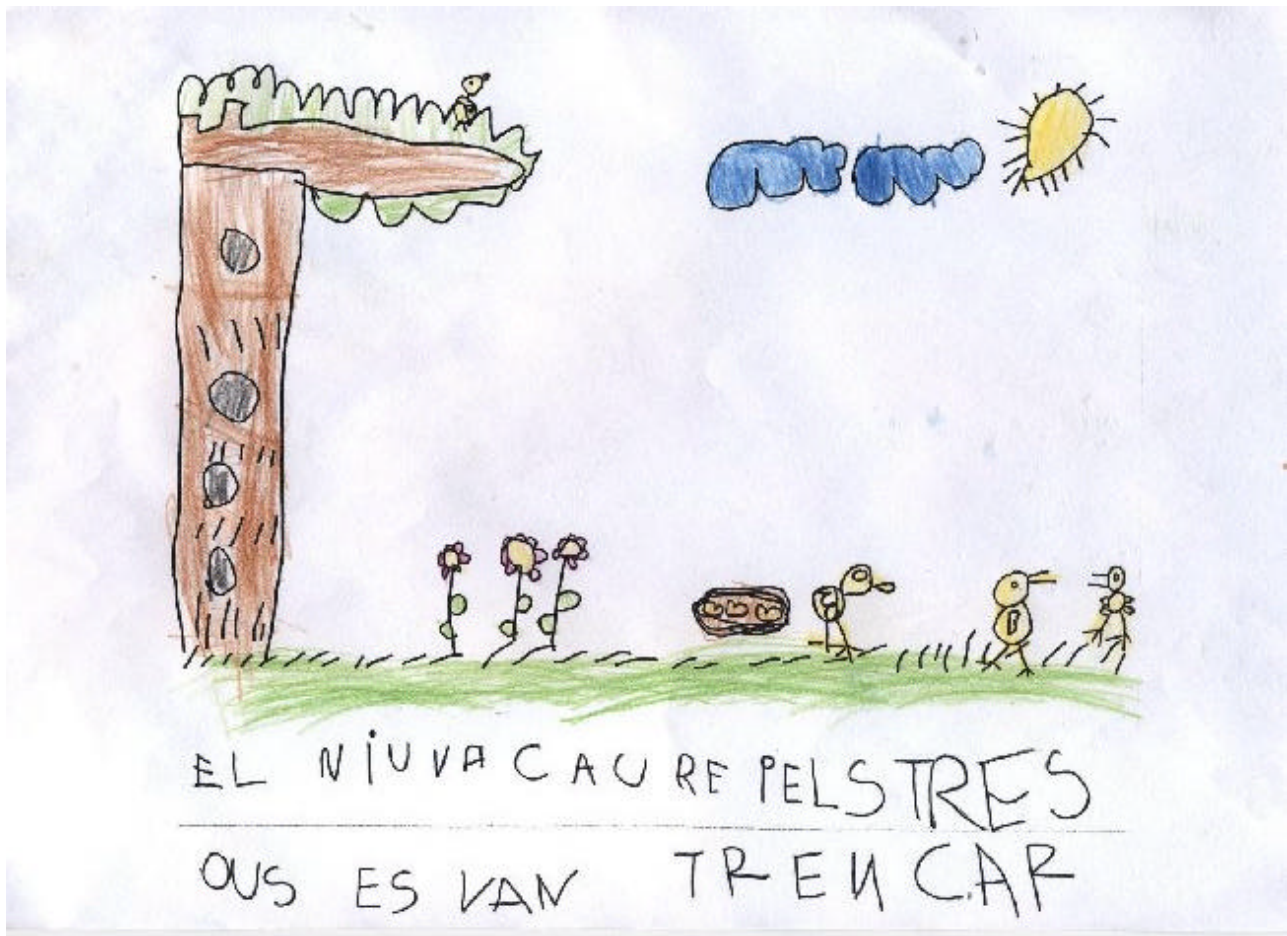 EL NiU VA CAURE PELS TRES
OUS ES VAN TRENCAR